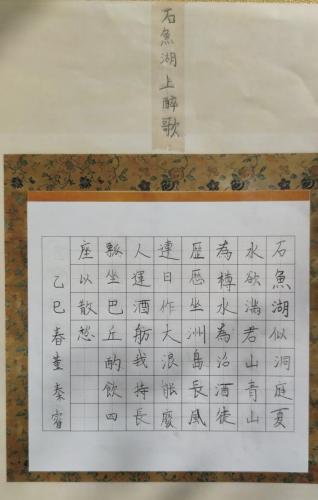 石魚湖上醉歌
石魚湖似洞庭夏
水欲滿君山青山
為樽水為沼酒徒
歷歷坐洲島長風
連日作大浪能廢
人運酒舫我持長
瓢坐巴丘酌飲四
座以散愁
乙巳春董秦睿